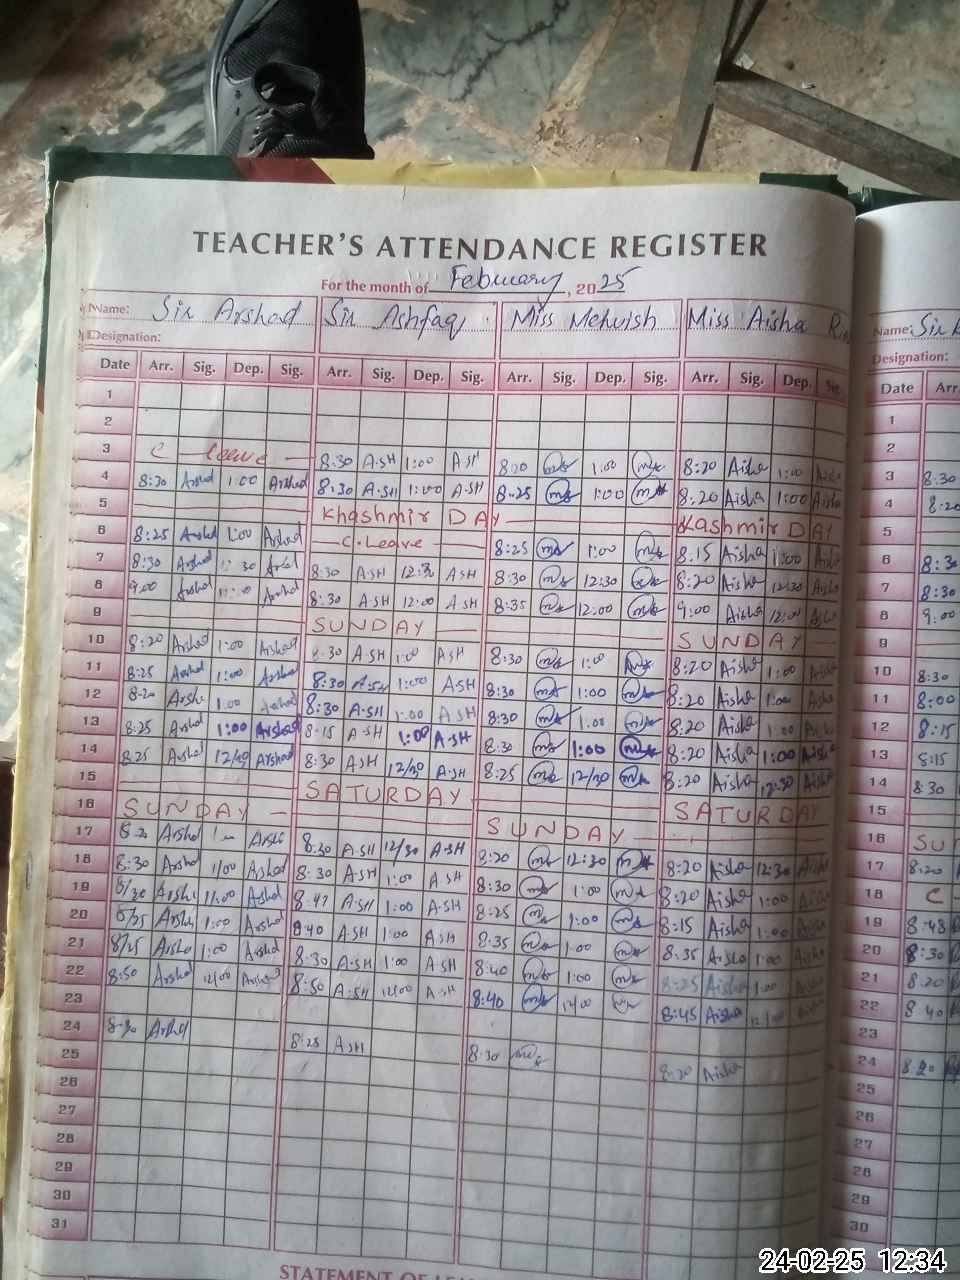 TEACHER'S ATTENDANCE REGISTER
For the month of February, 2025
Name: Sir Arshad Sir Ashfaq Miss Mehwish Miss Aisha Name: Sir
Designation: Designation:
Date Arr. Sig. Dep. Sig. Arr. Sig. Dep. Sig. Arr. Sig. Dep. Sig. Arr. Sig. Dep. Sig. Date Arr.
1 1
2 2
3 C leave 8:30 A·SH 1:00 A·SH 8:20 1:00 8:20 Aisha 1:00 Aisha 3 8:30
4 8:30 Arshad 1:00 Arshad 8:30 A·SH 1:00 A·SH 8:25 1:00 8:20 Aisha 1:00 Aisha 4 8:20
5 Khashmir DAY Kashmir DAY 5
6 8:25 Arshad 1:00 Arshad C.Leave 8:25 1:00 8:15 Aisha 1:00 Aisha 6 8:30
7 8:30 Arshad 30 8:30 A·SH 12:30 A·SH 8:30 12:30 8:20 Aisha 12:30 Aisha 7 8:30
8 9:00 Arshad Arshad 8:30 A·SH 12:00 A·SH 8:35 12:00 9:00 Aisha 12:00 Aisha 8 9:00
9 SUNDAY SUNDAY 9
10 8:20 Arshad 1:00 Arshad 8:30 A·SH 1:00 A·SH 8:30 1:00 8:20 Aisha 1:00 Aisha 10 8:30
11 8:25 Arshad 1:00 Arshad 8:30 A·SH 1:00 A·SH 8:30 1:00 8:20 Aisha 1:00 Aisha 11 8:00
12 8:20 Arshad 1:00 Arshad 8:30 A·SH 1:00 A·SH 8:30 1:00 8:20 Aisha 1:00 Aisha 12 8:15
13 8:25 Arshad 1:00 Arshad 8:15 A·SH 1:00 A·SH 8:30 1:00 8:20 Aisha 1:00 Aisha 13 8:15
14 8:25 Arshad 12/30 Arshad 8:30 A·SH 12/30 A·SH 8:25 12/30 8:20 Aisha 12:30 Aisha 14 8:30
15 SATURDAY SATURDAY 15
16 SUNDAY SUNDAY 16
17 Arshad 8:30 A·SH 12/30 A·SH 8:20 12:30 8:20 Aisha 12:30 Aisha 17 8:20
18 8:30 Arshad 1/00 Arshad 8:30 A·SH 1:00 A·SH 8:30 1:00 8:20 Aisha 1:00 Aisha 18 C
19 8/30 Arshad Arshad 8:47 A·SH 1:00 A·SH 8:25 1:00 8:15 Aisha 1:00 19 8:48
20 8/25 Arshad 1:00 Arshad 8:40 A·SH 1:00 A·SH 8:35 1:00 8:35 Aisha 1:00 20 8:30
21 8/25 Arshad 1:00 Arshad 8:30 A·SH 1:00 A·SH 8:40 1:00 8:25 Aisha 1:00 21 8:20
22 8:50 Arshad 12/00 Arshad 8:50 A·SH 12/00 A·SH 8:40 8:45 Aisha 22 8:40
23 23
24 8:30 Arshad 8:25 A·SH 8:30 8:20 Aisha 24
25 25
26 26
27 27
28 28
29 29
30 30
31
24-02-25 12:34